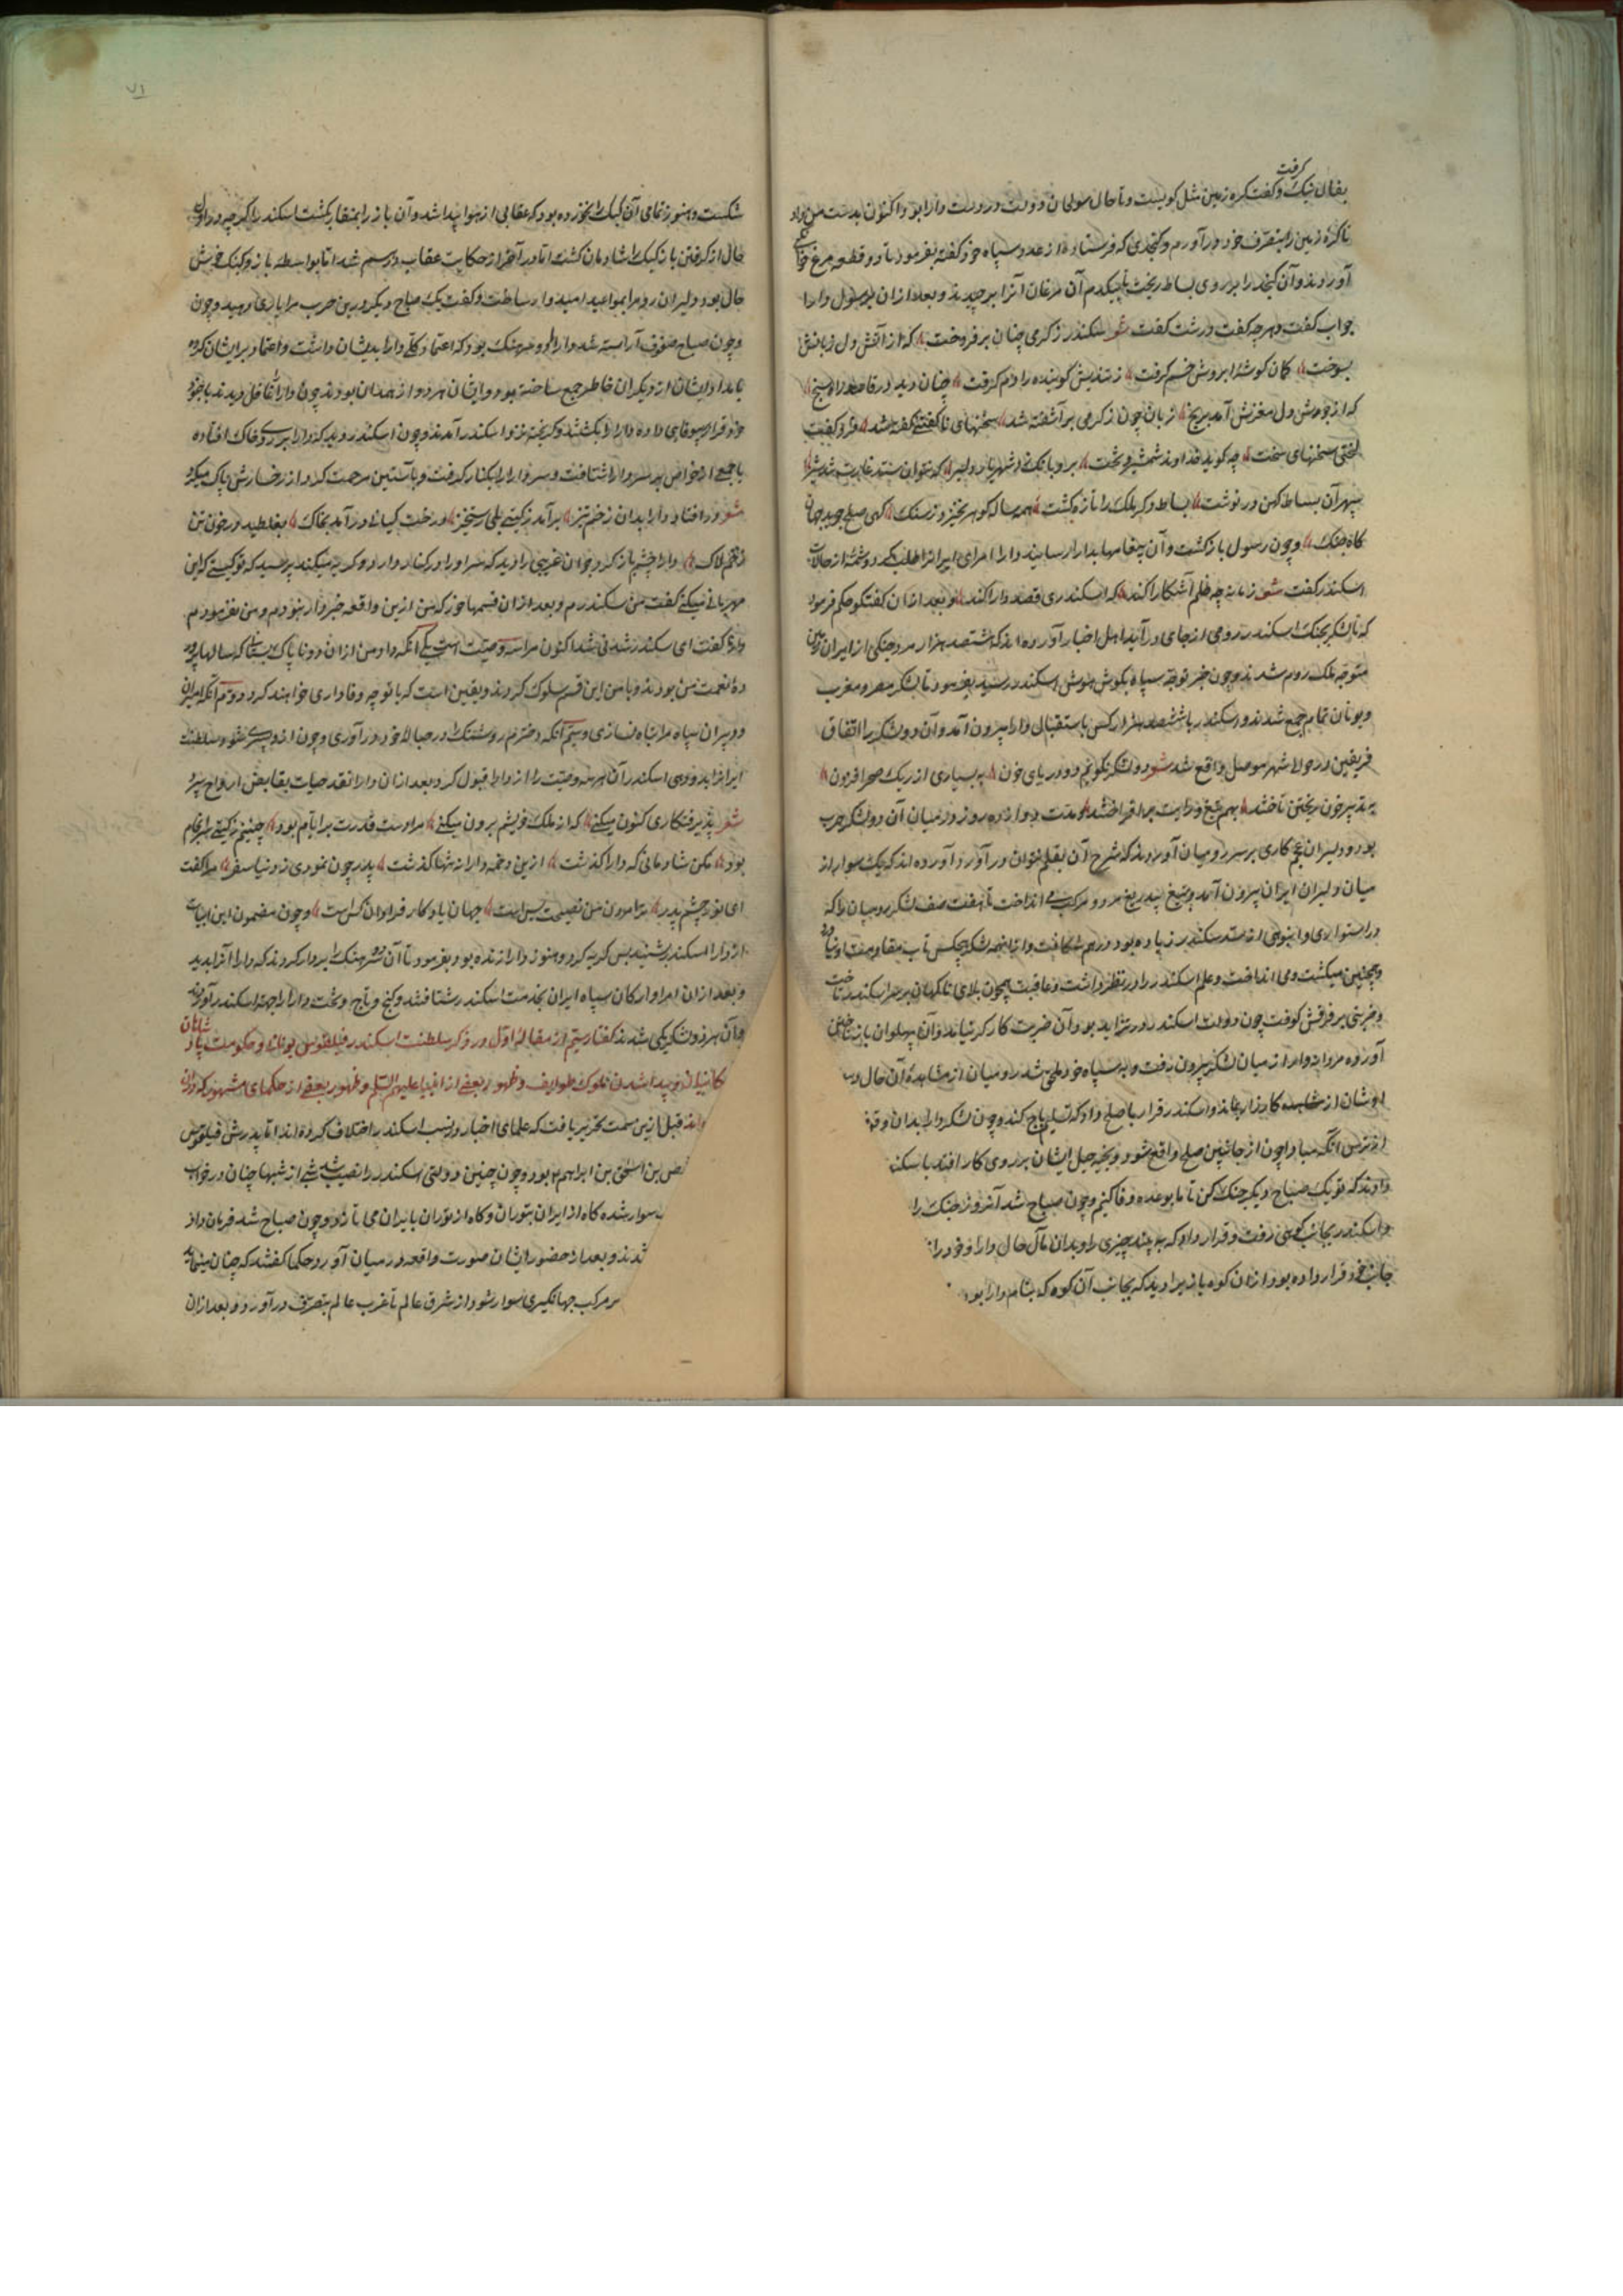 گرفت
بفال نیک و گفت کره زمین مثل کوییست و تا حال صولجان دولت در دست دارا بود و اکنون بدست من داد
تا کره زمین را بتصرف خود در آورم و کنجدی که فرستاده از عدد سپاه خود گفته بفرمود تا دو قطعه مرغ
آوردند و آن کنجد را بر روی بساط ریخت بیکدم آن مرغان آنرا برچیدند و بعد از ان رسول دارا
جواب گفت و هرچه گفت درشت گفت شعر سکندر ز گرمی چنان برفروخت که از آتش دل زبانش
بسوخت کمان گوشه ابروش خم گرفت ز تندیش گوینده را دم گرفت چنان دید در قاصد راه سنج
که از جوش دل مغزش آمد برنج زبان چون ز گرمی بر آشفته شد سخنهای ناگفتنی گفته شد فرو گفت
لختی سخنهای سخت چه گوید خداوند شمشیر و تخت برو بانگ زد شهریار دلیر که نتوان ستد غارت تند شیر
سپهر آن بساط کهن در نوشت بساط دگر ملک را تازه گشت همه ساله گوهر نخیزد ز سنگ گهی صلح جوید جهان
گاه جنگ و چون رسول باز گشت و آن پیغامها بدارا رسانید دارا امرای ایرانرا طلب کرد و شمه از حالات
اسکندر گفت شعر زمانه چه ظلم آشکارا کند که اسکندری قصد دارا کند و بعد از ان گفتگو حکم فرمود
که تا لشکر بجنگ اسکندر رومی از جای در آید اهل اخبار آورده اند که ششصد هزار مرد جنگی از ایران زمین
متوجه ملک روم شدند و چون خبر توجه سپاه بگوش هوش اسکندر رسید بفرمود تا لشکر مصر و مغرب
و یونان تمام جمع شدند و اسکندر با ششصد هزار کس باستقبال دارا بیرون آمد و آن دو لشکر را اتفاق
فریقین در حوالی شهر موصل واقع شد شعر دو لشکر نگویم دو دریای خون به بسیاری از ریگ صحرا فزون
به تدبیر خون ریختن تاختند بهم تیغ و رایت برافراختند و مدت دوازده روز در میان آن دو لشکر حرب
بود و دلیران عجم کاری بر سر رومیان آوردند که شرح آن بقلم نتوان در آورد آورده اند که یک سوار از
میان دلیران ایران بیرون آمد و تیغ بیدریغ مرد و مرکب می انداخت تا هفت صف لشکر رومیان را که
در استواری و انبوهی از سد سکندر زیاده بود در هم شکافت و از انهمه لشکر هیچکس تاب مقاومت او نیاورد
و همچنین میکشت و می انداخت و علم اسکندر را در نظر داشت و عاقبت همچون بلای ناگهان بر سر اسکندر تاخت
و ضربتی بر فرقش کوفت چون دولت اسکندر در تزاید بود آن ضربت کارگر نیامد و آن پهلوان باز
آورده مردانه وار از میان لشکر بیرون رفت و به سپاه خود ملحق شد رومیان از مشاهده آن حال
کارزار بماند و اسکندر قرار با صلح داد که تسلیم باج کند و چون لشکر دارا بدان
از ترس آنکه مبادا چون از جانبین صلح واقع شود و بخیه حیل ایشان بر روی کار افتد
دادند که تو یک صباح دیگر جنگ کن تا ما بوعده وفا کنیم و چون صباح شد آنروز جنگ را
و اسکندر بجانب کوهی رفت و قرار داد که به بیند چیزی را و بدان مآل حال دارا و خود را
جانب خود قرار داده بود از ان کوه باز پرا دید که بجانب آن کوه که بنام دارا بود
شکست و هنوز تمامی آن کبک را نخورده بود که عقابی از هوا پیدا شد و آن باز را بمنقار بکشت اسکندر را اگرچه در اول
حال از گرفتن باز کبک را شادمان گشت اما در آخر از حکایت عقاب در هم شد اما بواسطه باز و کبک خوش
حال بود و لیران روم را بمواعید امیدوار ساخت و گفت یک صباح دیگر در ین حرب مرا یاری دهید و چون
و چون صباح صفوف آراسته شد دارا را دو سرهنگ بود که اعتماد کلی دارا بدیشان داشت و اعتماد بر ایشان کرده
بامداد ایشان از دیگران خاطر جمع ساخته بود و ایشان هر دو از همدان بودند چون دارا را غافل دیدند با خود
خود قرار بیوفایی داده دارا را بکشتند و گریخته نزد اسکندر آمدند و چون اسکندر دید که دارا بر روی خاک افتاده
با جمعی از خواص بر سر دارا شتافت و سر دارا را بکنار گرفت و بآستین مرحمت گرد از رخسارش پاک میکرد
شعر در افتاد دارا بدان زخم تیز بر آمد ز گیتی یکی رستخیز درخت کیانی در آمد بخاک بغلطید در خون تن
زخم لاک دارا چشم باز کرد و جوان غریبی را دید که سر او را در کنار دارد و گریه میکند پرسید که تو کیستی که این
مهربانی میکنی گفت من سکندرم و بعد از ان قسمها خورد که من ازین واقعه خبردار نبودم و من نفرمودم
دارا گفت ای سکندر شدنی شد اکنون مرا سه وصیت است یکی آنکه داد من از ان دو ناپاک بستان که سالها پرور
ده نعمت من بودند و با من این قسم سلوک کردند و یقین است که با تو چه وفاداری خواهند کرد دوم آنکه امیران
و پیران سپاه مرا تباه نسازی و سیم آنکه دخترم روشنک را در حباله خود در آوری و چون از و پسری شود سلطنت
ایران بدو دهی اسکندر آن هر سه وصیت را از دارا قبول کرد و بعد از ان دارا نقد حیات بقابض ارواح سپرد
شعر پذیرفتکاری کنون میکنی که از ملک خویشم برون میکنی مرا دست قدرت بر ایام بود چنینم ز گیتی سرانجام
بود مکن شادمانی که دارا گذشت ازین دخمه دارا نه تنها گذشت پدر چون نمودی ز دنیا سفر مرا گفت
ای نور چشم پدر ترا مردن من نصیحت بس است جهان یادگار فراوان کس است و چون مضمون این ابیات
از دارا اسکندر بشنید بس گریه کرد و هنوز دارا زنده بود بفرمود تا آن دو سرهنگ را بر دار کردند که دارا آنرا بدید
و بعد از ان امرا و ارکان سپاه ایران بخدمت اسکندر شتافتند و گنج و تاج و تخت دارا را جهة اسکندر آوردند
و آن هر دو لشکر یکی شدند گفتار سیتم از مقاله اول در ذکر سلطنت اسکندر فیلقوس یونانی و حکومت پادشاهان
کانیان و پیدا شدن ملوک طوایف و ظهور بعضی از انبیا علیهم السلم و ظهور بعضی از حکمای مشهور که در ان
قبل ازین سمت تحریر یافت که علمای اخبار در نسب اسکندر اختلاف کرده اند اما پدرش فیلقوس
بن اسحق بن ابراهیم بود و چون چنین دولتی اسکندر را نصیب شد شبی از شبها چنان در خواب
سوار شده گاه از ایران بتوران و گاه از توران بایران می تازد و چون صباح شد فرمان داد
شدند و بعد از حضور ایشان صورت واقعه در میان آورد حکما گفتند که چنان مینماید
بر مرکب جهانگیری سوار شود از شرق عالم تا غرب عالم بتصرف در آورد و بعد از ان